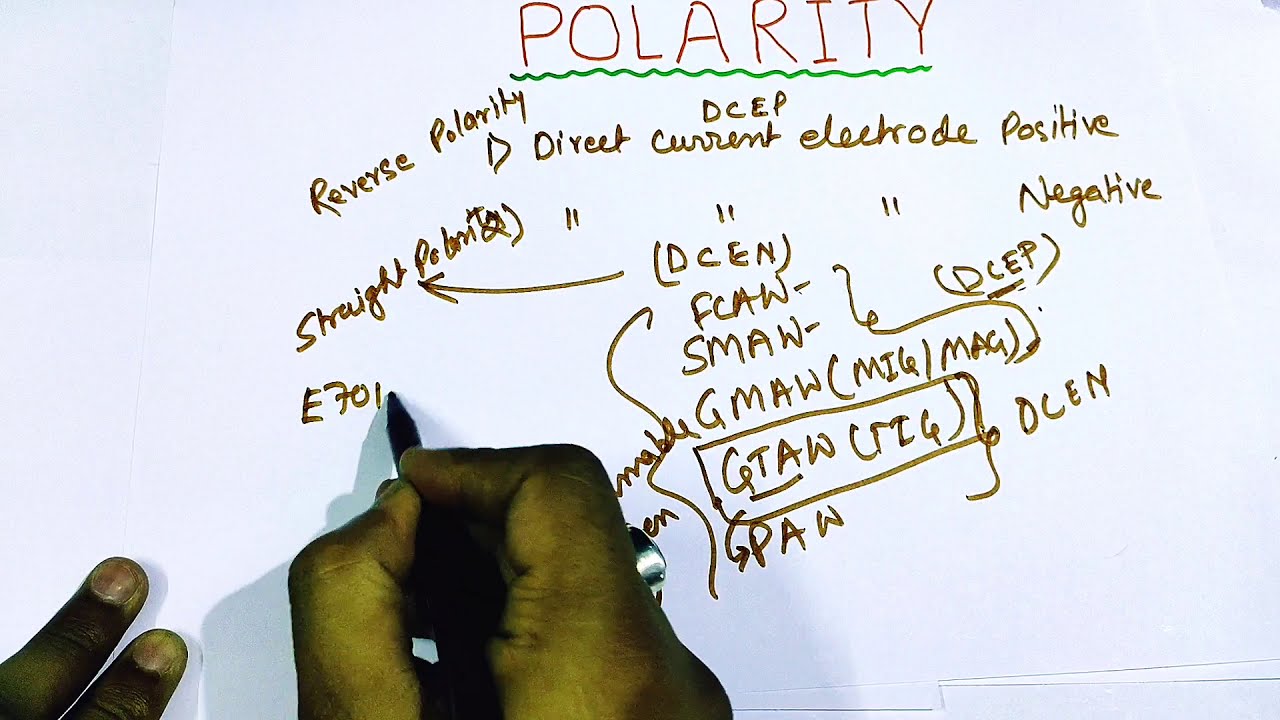 POLARITY
DCEP
Reverse Polarity
1) Direct current electrode Positive
Straight Polarity
2) " " " Negative
(DCEN)
(DCEP)
FCAW-
SMAW-
GMAW (MIG/MAG)
DCEN
GTAW (TIG)
GPAW
E701